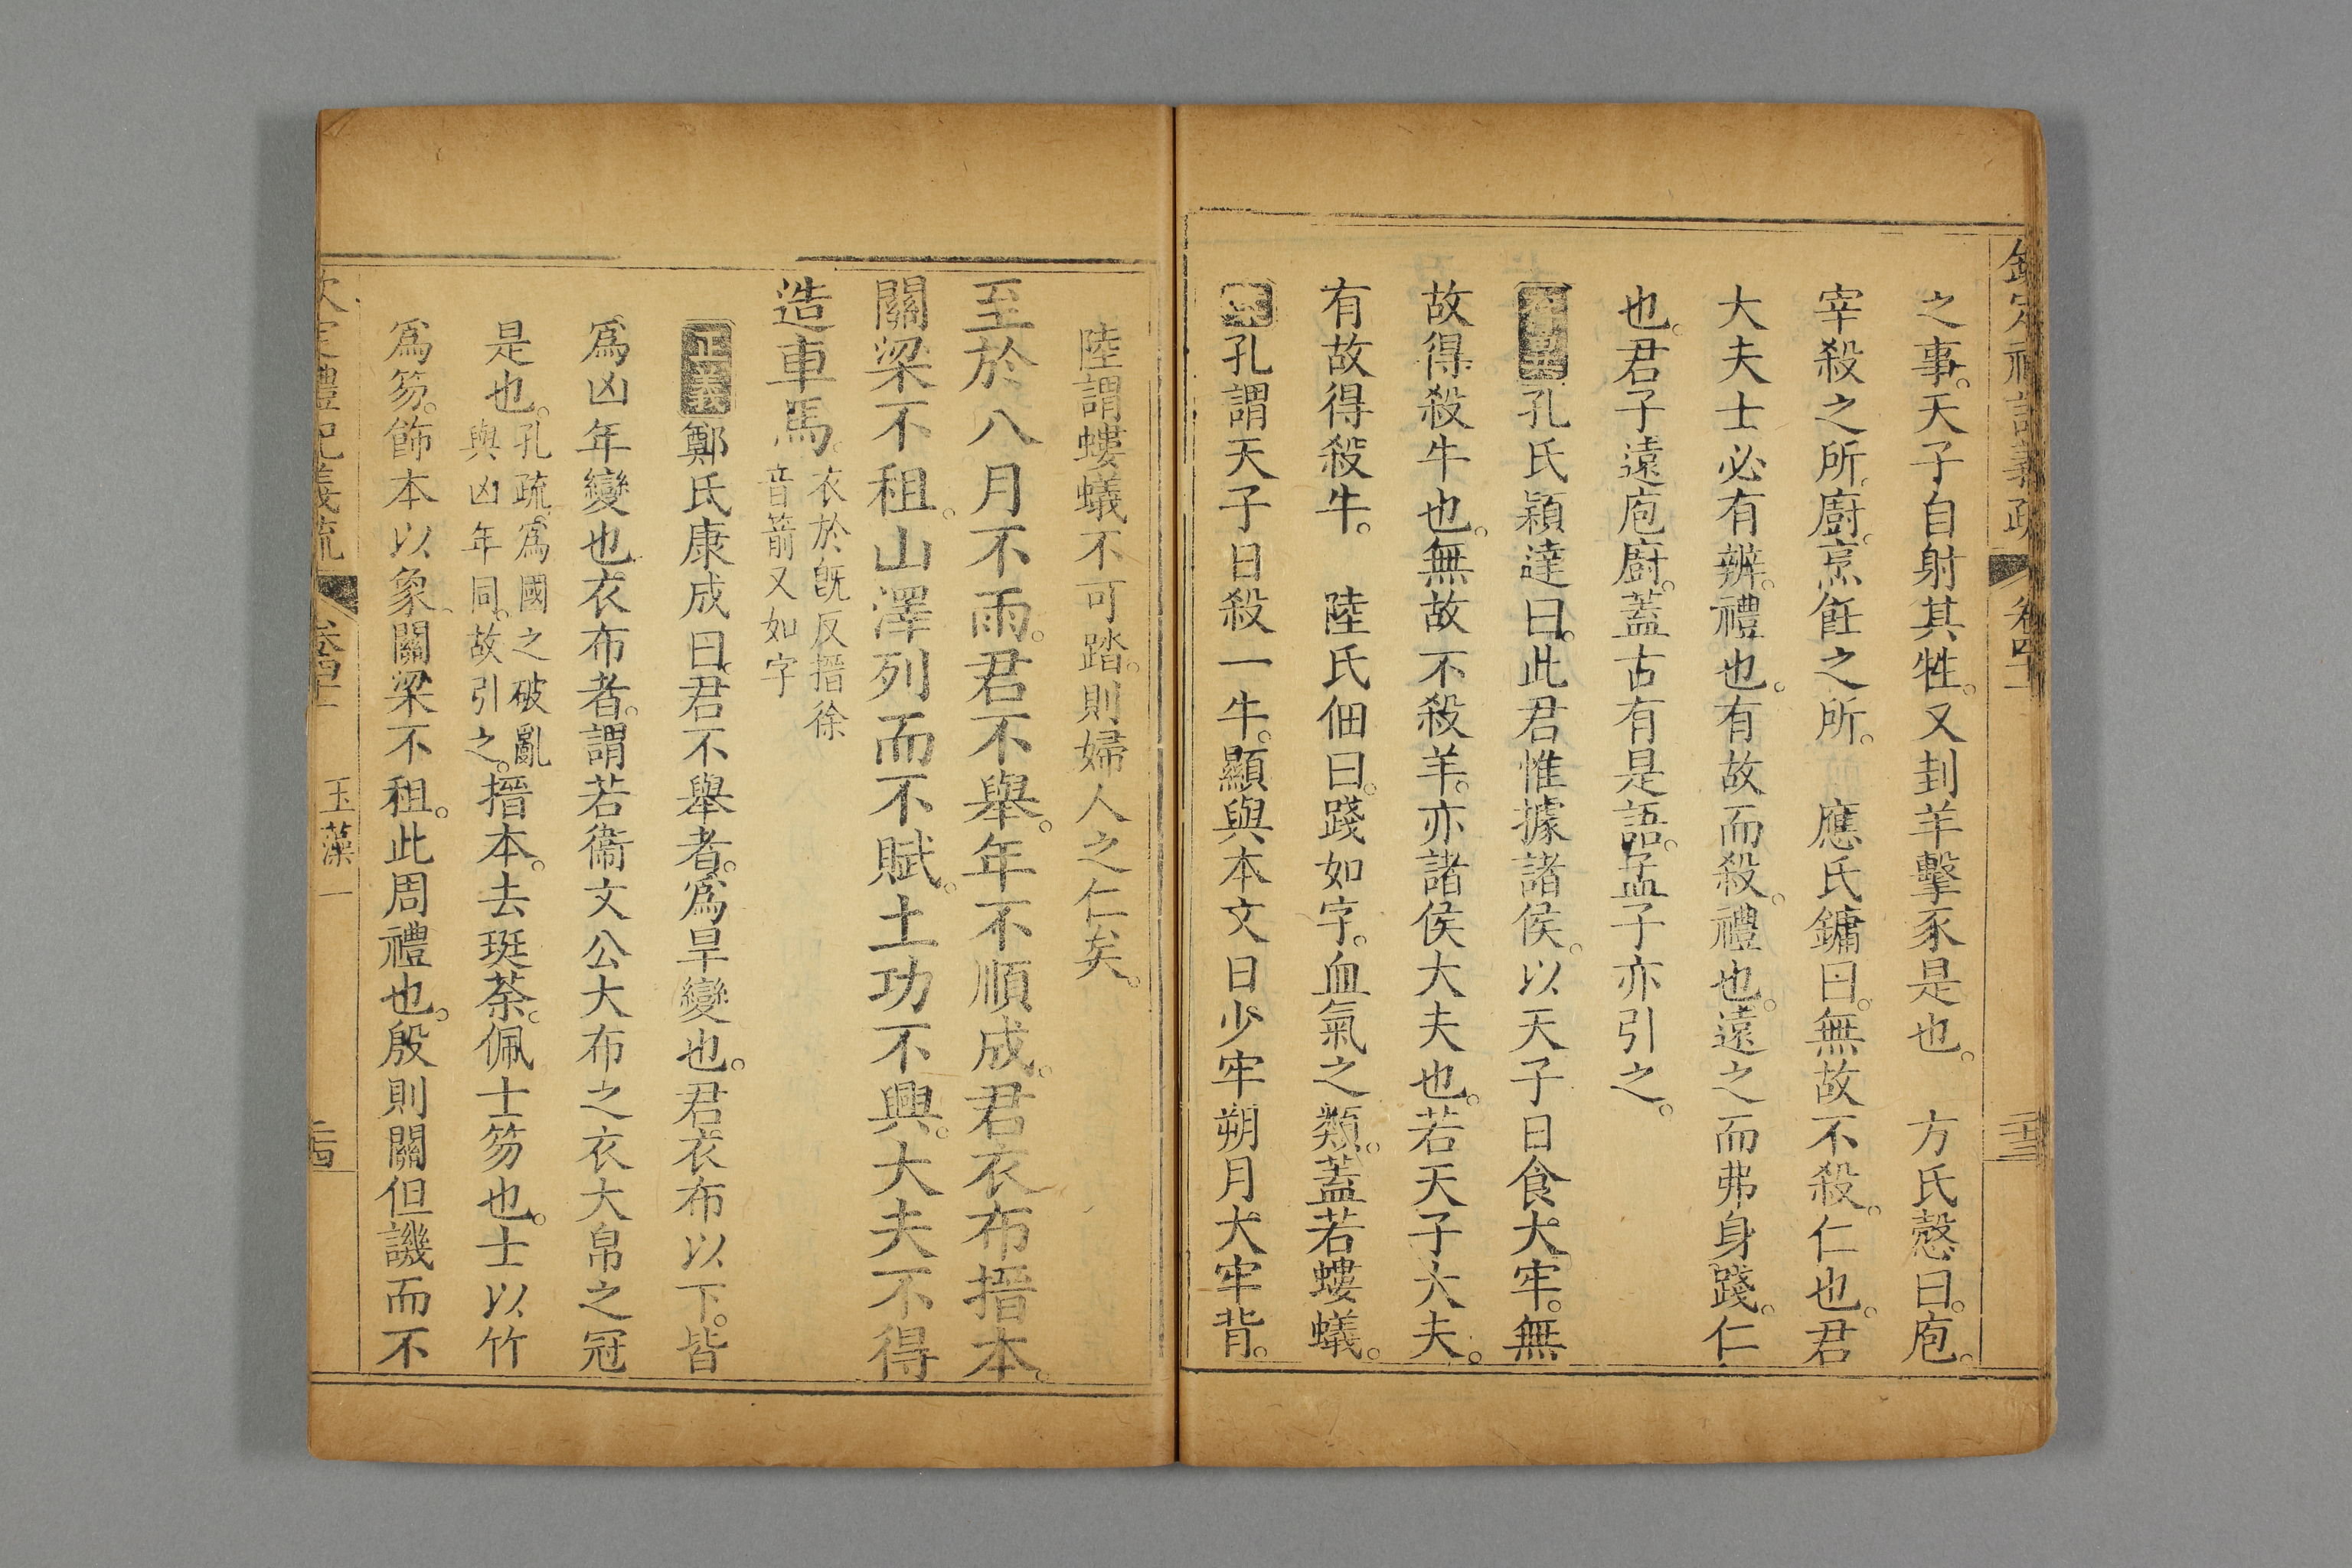 欽定禮記義疏 卷四十一 二十三
之事。天子自射其牲。又刲羊擊豕是也。 方氏慤曰。庖。
宰殺之所。廚。烹飪之所。 應氏鏞曰。無故不殺。仁也。君
大夫士必有辨。禮也。有故而殺。禮也。遠之而弗身踐。仁
也。君子遠庖廚。蓋古有是語。孟子亦引之。
孔氏穎達曰。此君惟據諸侯。以天子日食大牢。無
故得殺牛也。無故不殺羊。亦諸侯大夫也。若天子大夫。
有故得殺牛。 陸氏佃曰。踐如字。血氣之類。蓋若螻蟻。
孔謂天子日殺一牛。顯與本文日少牢朔月大牢背。
陸謂螻蟻不可踏。則婦人之仁矣。
至於八月不雨。君不舉。年不順成。君衣布搢本。
關梁不租。山澤列而不賦。土功不興。大夫不得
造車馬。衣於旣反搢徐
音箭又如字
正義鄭氏康成曰。君不舉者。爲旱變也。君衣布以下。皆
爲凶年變也。衣布者。謂若衞文公大布之衣大帛之冠
是也。孔疏。爲國之破亂
與凶年同。故引之。搢本。去珽荼。佩士笏也。士以竹
爲笏。飾本以象。關梁不租。此周禮也。殷則關但譏而不
欽定禮記義疏 卷四十一 玉藻一 二十四